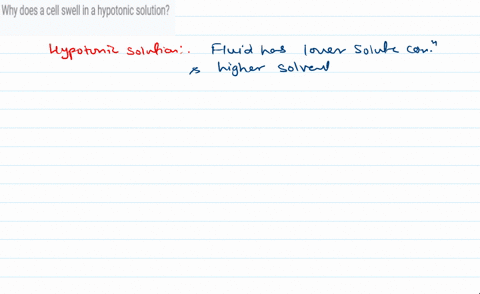 Why does a cell swell in a hypotonic solution?
Hypotonic solution:. Fluid has lower solute con.ⁿ
& higher solvent